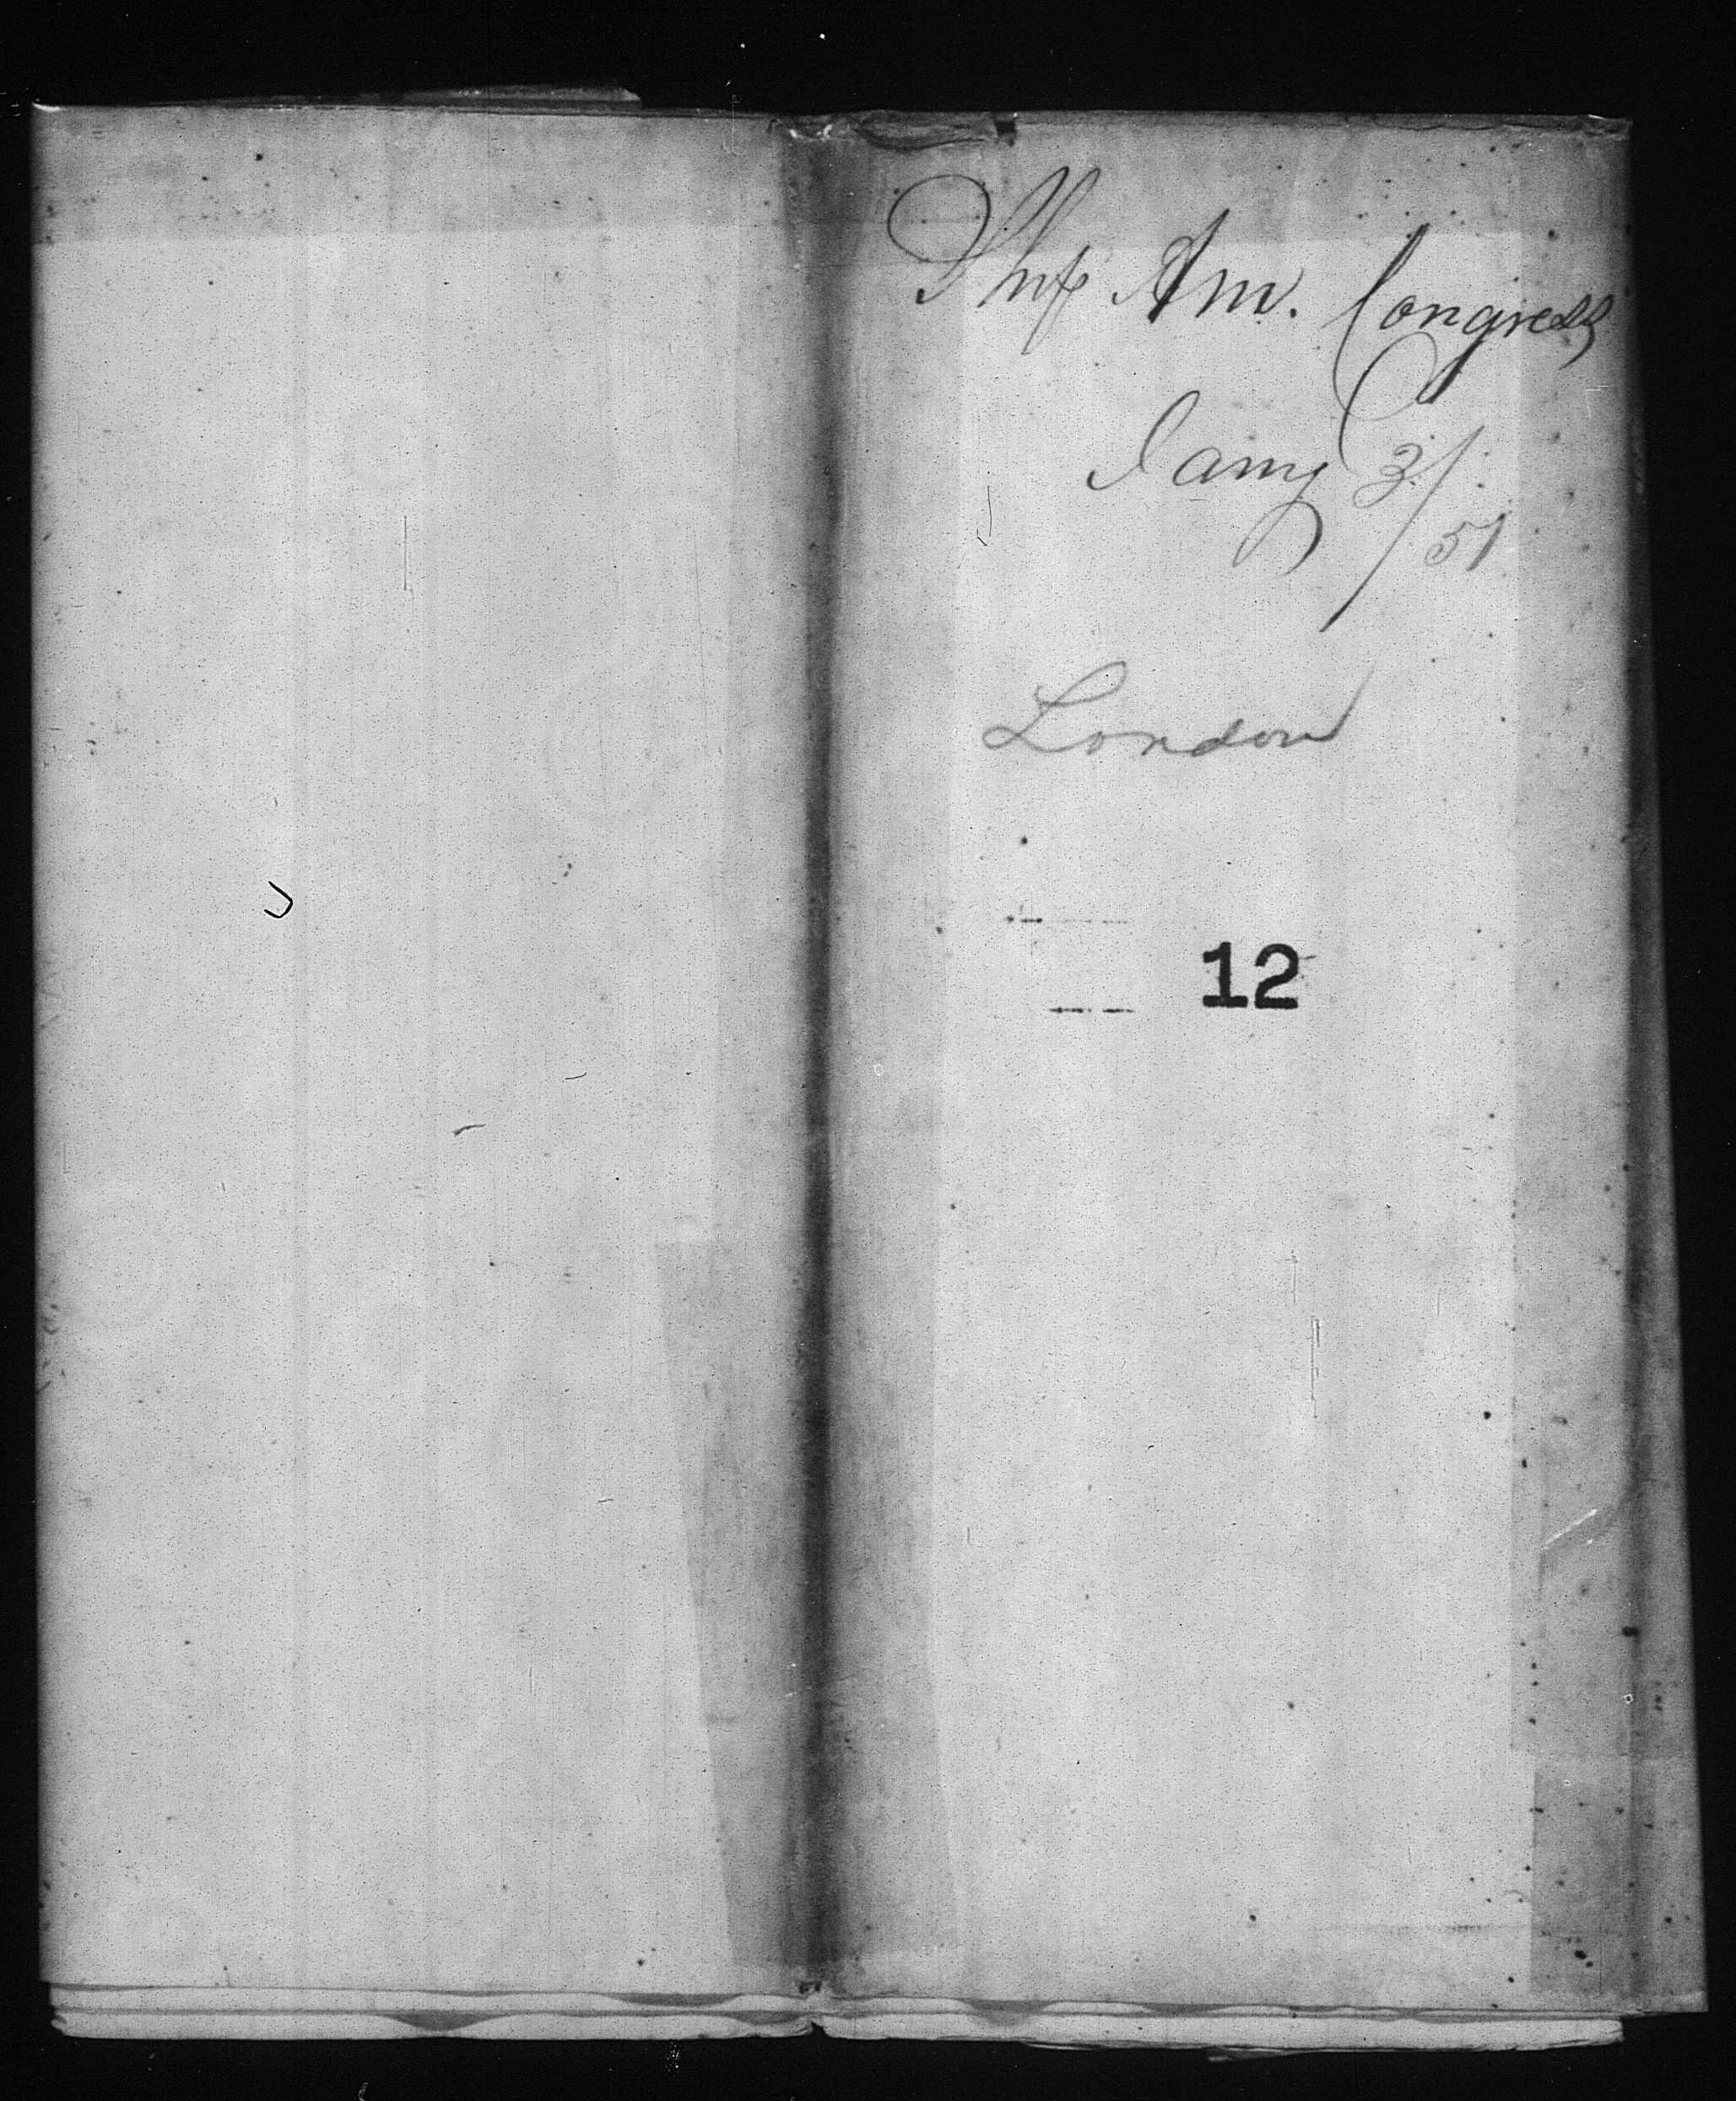 Ship Am. Congress
Jany 3/51
London
12